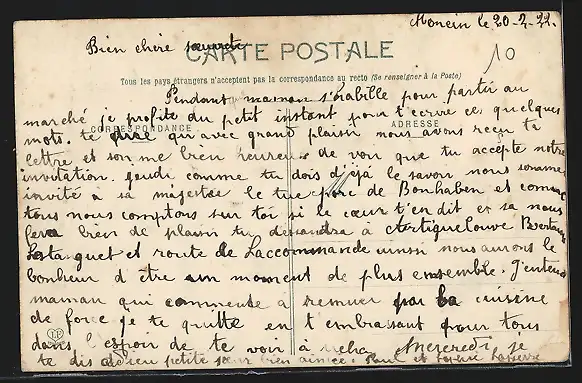 Monein le 20-2-22.
Bien chère soeurette
CARTE POSTALE
10
Tous les pays étrangers n'acceptent pas la correspondance au recto (Se renseigner à la Poste)
Pendant maman s'habille pour partir au
marché je profite du petit instant pour t'écrire ces quelques
CORRESPONDANCE
ADRESSE
mots. te dire qui avec grand plaisir nous avons reçu ta
lettre et son me bien heureux de voir que tu accepte notre
invitation. jeudi comme tu dois déjà le savoir nous somme
invité à sa majestée le tue porc de Bonhaben et comme
tous nous comptons sur toi si le cœur t'en dit et sa nous
fera bien de plaisir tu dessendra à Artiguelouve
Lastanguet et route de Laccommande ainsi nous aurons le
bonheur d'être un moment de plus ensemble. J'entend
maman qui commense à remuer par la cuisine
de force je te quitte en t'embrassant pour tous
dans l'espoir de te voir à Mercredi, je
te dis adieu petite sœur bien aimée. Paul et